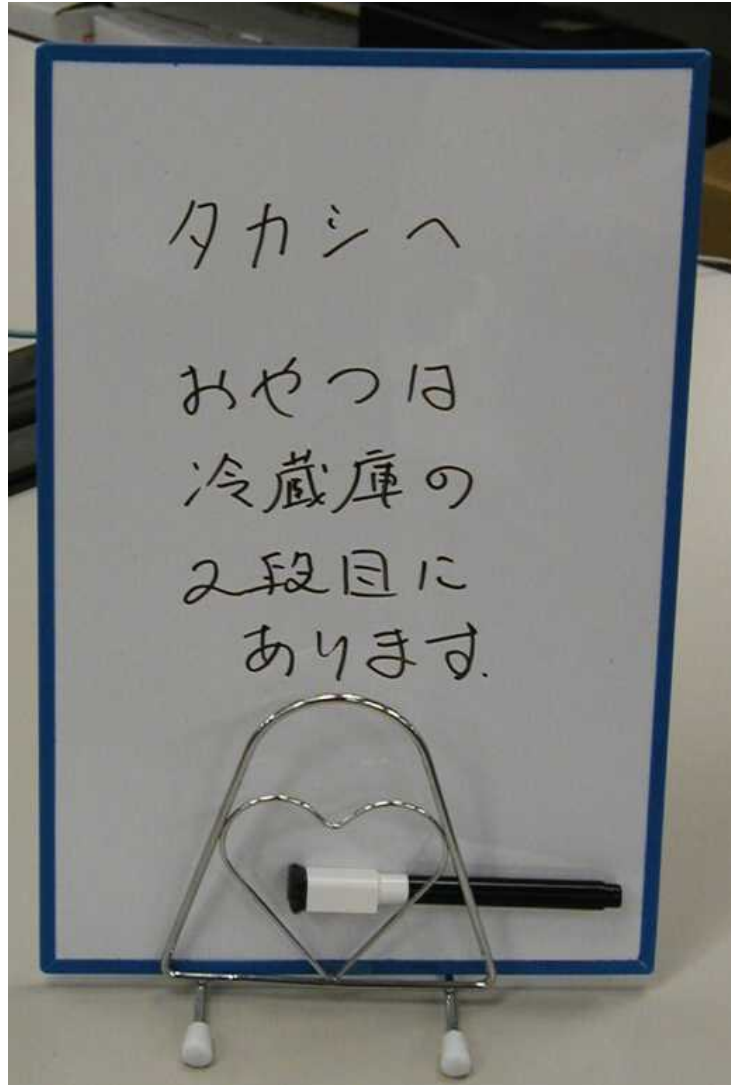 タカシへ
おやつは
冷蔵庫の
2段目に
あります.